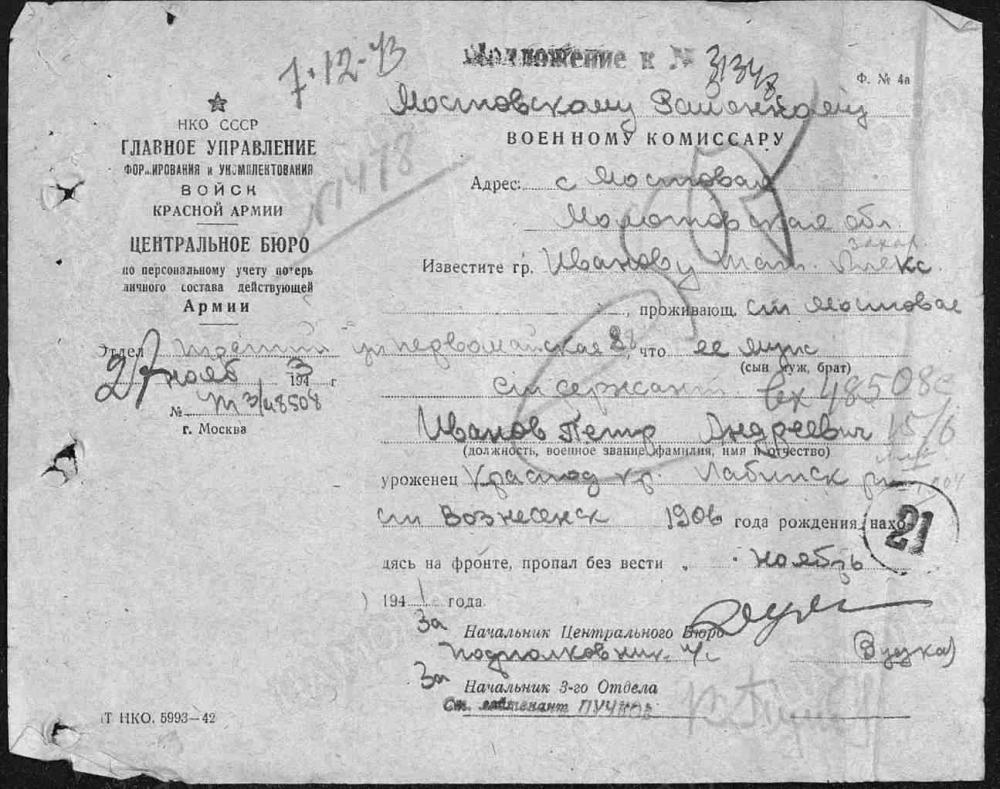 7-12-43
Приложение к №
Ф. № 4а
НКО СССР
ГЛАВНОЕ УПРАВЛЕНИЕ
ФОРМИРОВАНИЯ и УКОМПЛЕКТОВАНИЯ
ВОЙСК
КРАСНОЙ АРМИИ
ЦЕНТРАЛЬНОЕ БЮРО
по персональному учету потерь
личного состава действующей
Армии
Отдел третий
27 нояб 1943 г
№ т 3/48508
г. Москва
Мостовскому
ВОЕННОМУ КОМИССАРУ
Адрес: с Мостовая
обл
Известите гр. Иванову
, проживающ. ст Мостовое
ул первомайская 88, что ее муж
(сын муж, брат)
ст сержант вх 48508с
Иванов Петр Андреевич 15/6
(должность, военное звание, фамилия, имя и отчество)
уроженец Краснод кр. Лабинск
ст Вознесенск 1906 года рождения, нахо-
21
дясь на фронте, пропал без вести ноябрь
1941 года
За
Начальник Центрального Бюро
подполковник
За
Начальник 3-го Отдела
Ст. лейтенант ПУЧКОВ
Т НКО. 5993—42